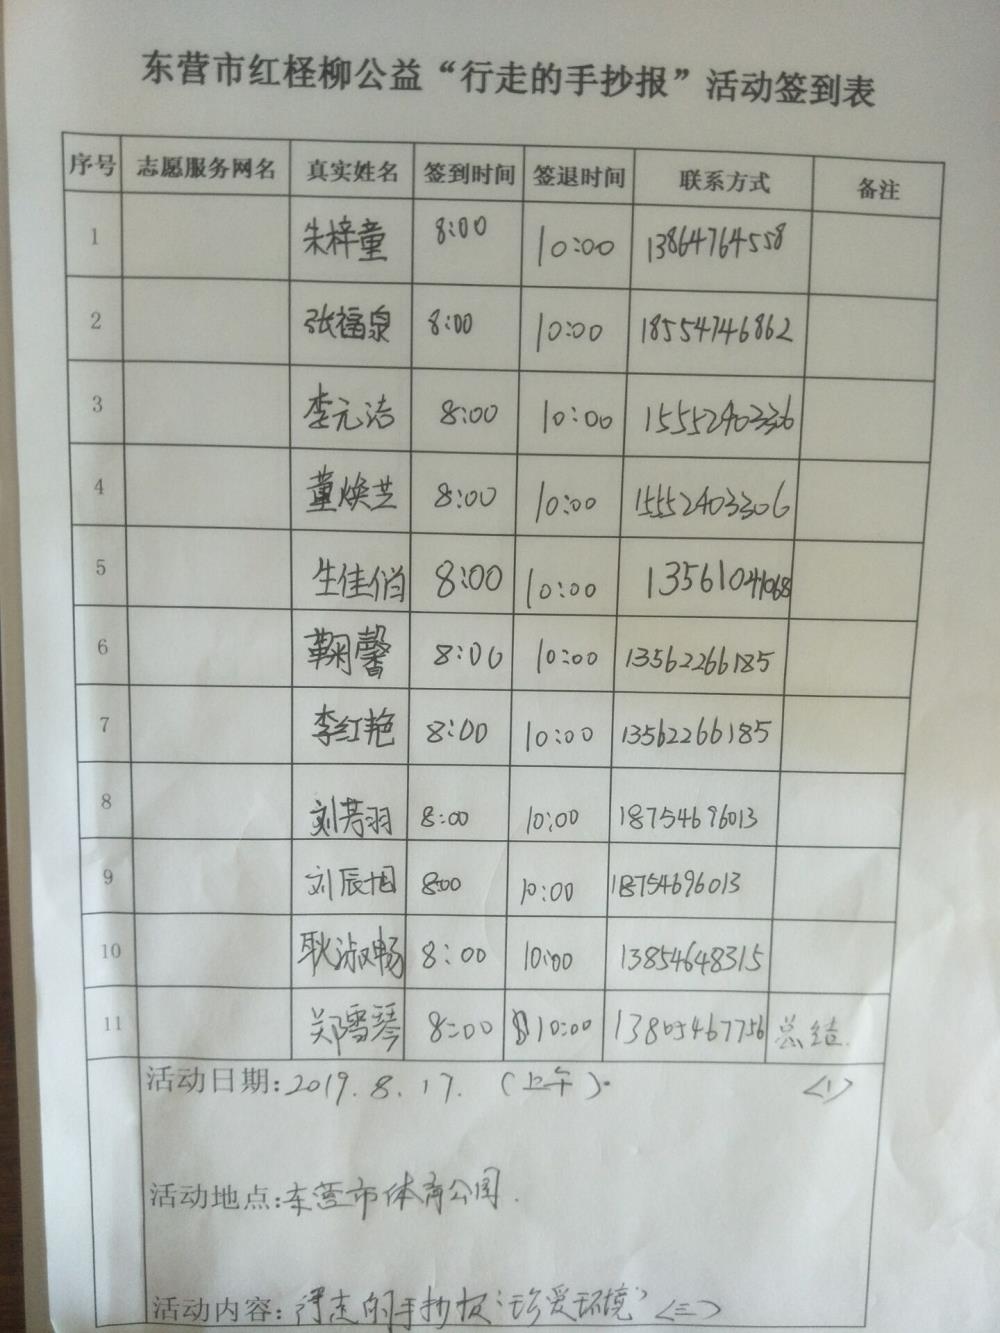 东营市红柽柳公益“行走的手抄报”活动签到表
序号 志愿服务网名 真实姓名 签到时间 签退时间 联系方式 备注
1 朱梓童 8:00 10:00 13864764558
2 张福泉 8:00 10:00 18554746862
3 李元洁 8:00 10:00 15552403306
4 董焕芝 8:00 10:00 15552403306
5 生佳俏 8:00 10:00 13561041068
6 鞠馨 8:00 10:00 13562266185
7 李红艳 8:00 10:00 13562266185
8 刘芳羽 8:00 10:00 18754696013
9 刘辰旭 8:00 10:00 18754696013
10 耿淑畅 8:00 10:00 13854648315
11 郑雪琴 8:00 10:00 13805467756 总结.
活动日期:2019.8.17.(上午). <1>
活动地点:东营市体育公园.
活动内容:行走的手抄报“珍爱环境”<三>